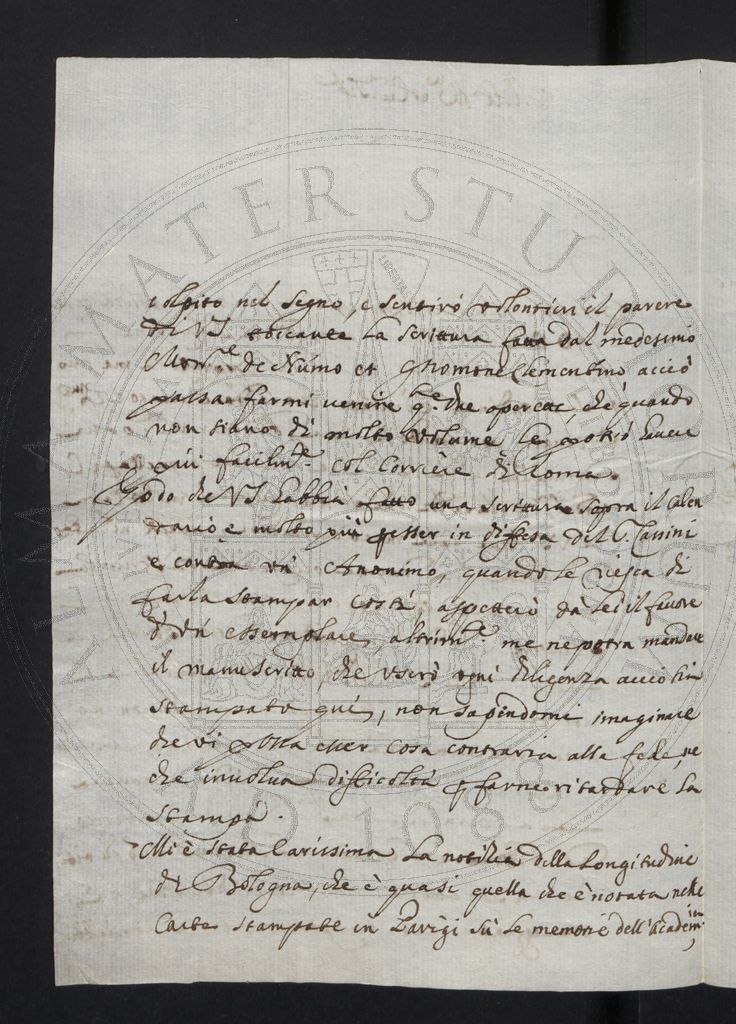 colpito nel segno, e sentirò volontieri il parere
di VS toccante la scrittura fatta dal medesimo
Mons.re de Numo et Gnomone Clementino acciò
possa farmi venire q.e due operette, che quando
non siano di molto volume le potrò havere
più facilm.te col Corriere di Roma.
Godo che VS habbia fatto una scrittura sopra il Calen
dario e molto più p esser in diffesa del S. Cassini
e contra un Anonimo, quando le riesca di
farla stampar costì, aspetterò da lei il favore
d'un essemplare, altrim.te me ne potrà mandare
il manuscritto, che userò ogni diligenza acciò sia
stampato qui, non sapendomi imaginare
che vi possa esser cosa contraria alla fede, ne
che involua difficoltà p farne ritardare la
stampa.
Mi è stata carissima la notitia della Longitudine
di Bologna, che è quasi quella che è notata nelle
Carte stampate in Parigi sù le memorie dell'Academ
ALMA MATER STUDIORUM
A.D. 1088